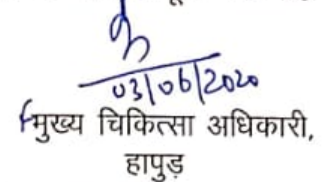 03/06/2020
मुख्य चिकित्सा अधिकारी,
हापुड़